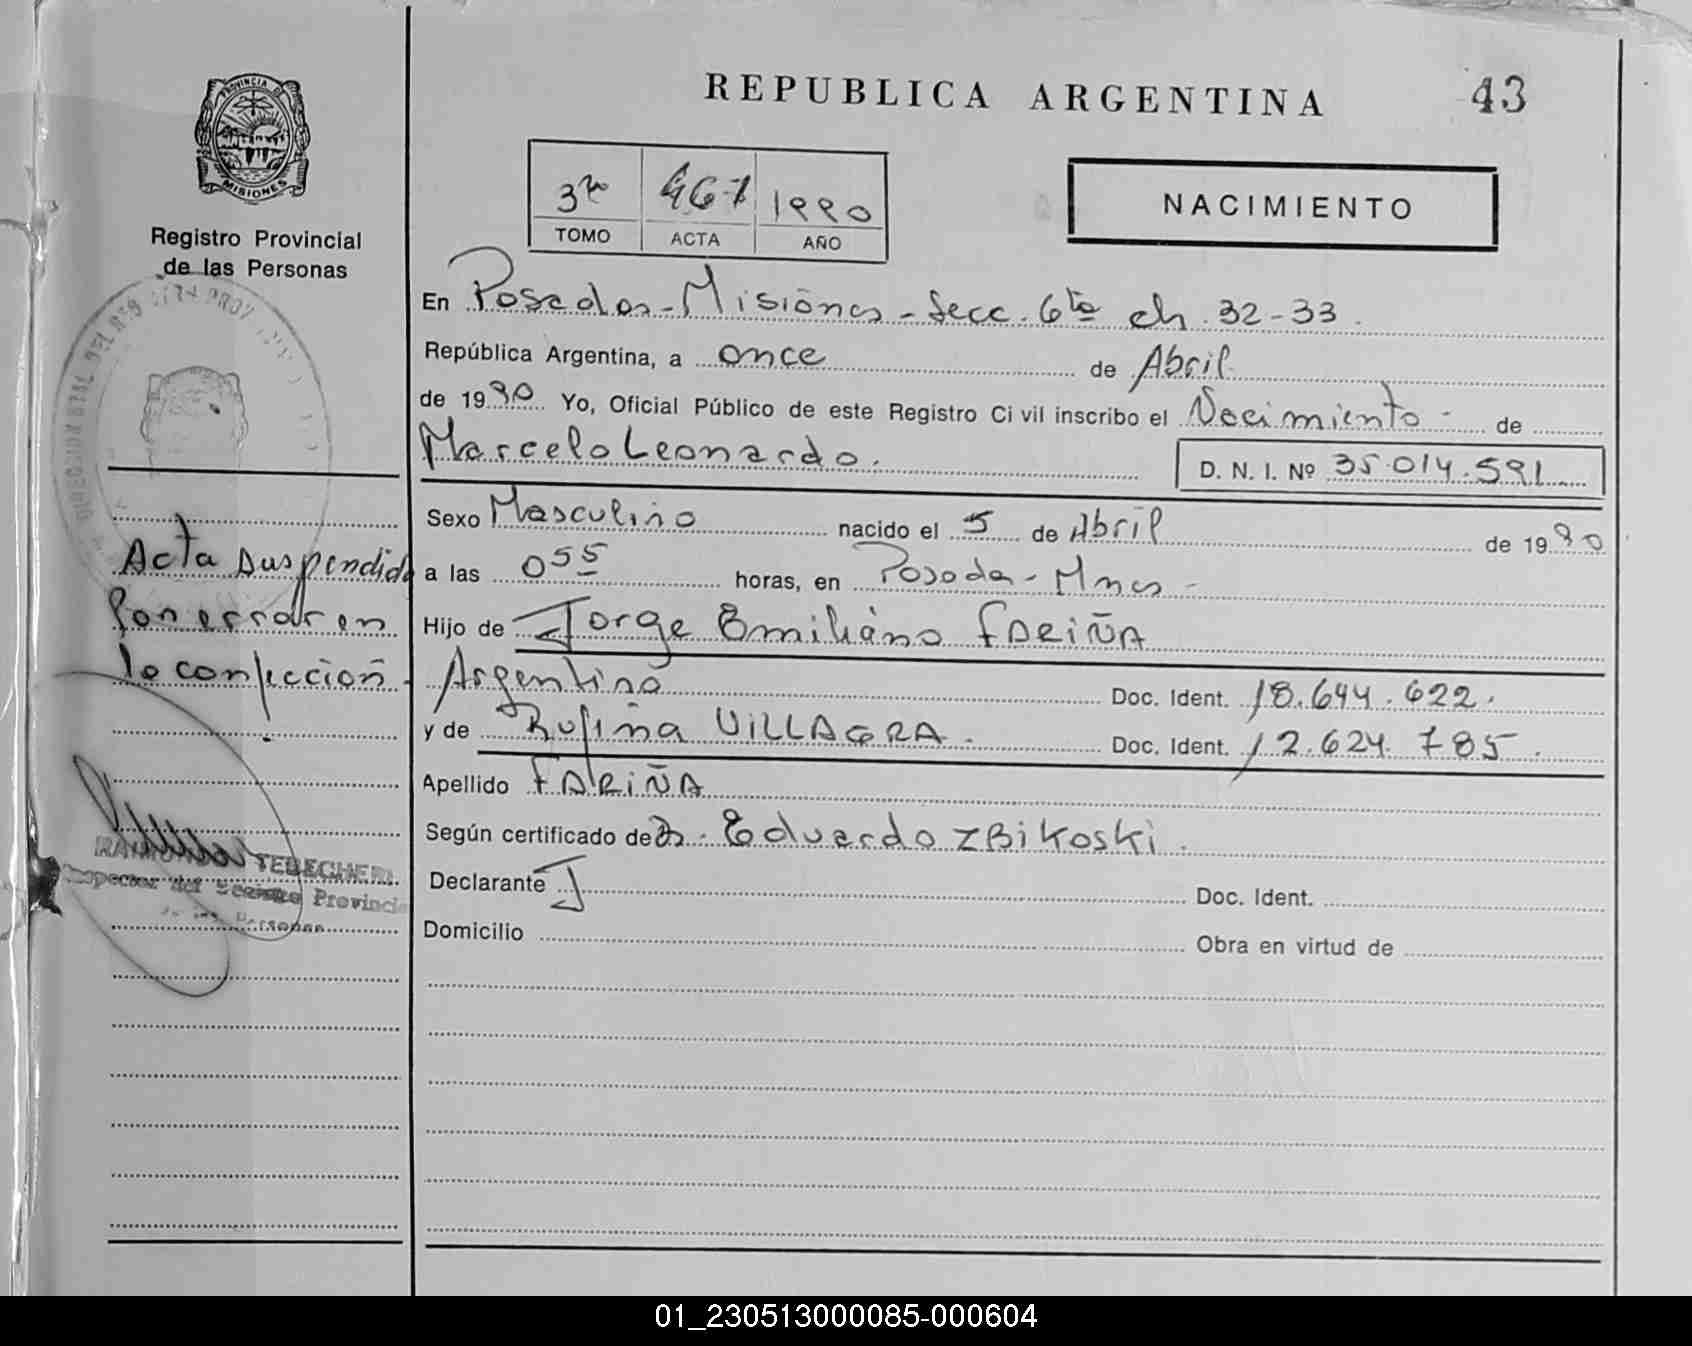 REPUBLICA ARGENTINA
43
PROVINCIA DE
MISIONES
Registro Provincial
de las Personas
3ro 467 1990
TOMO ACTA AÑO
NACIMIENTO
En Posadas - Misiones - Secc. 6ta ch. 32-33.
República Argentina, a once de Abril
de 1990 Yo, Oficial Público de este Registro Civil inscribo el Nacimiento - de
Marcelo Leonardo.
D. N. I. Nº 35.014.591
Sexo Masculino nacido el 5 de Abril de 1990
a las 0 55 horas, en Posadas - Mnes -
Hijo de Jorge Emiliano FARIÑA
Argentino Doc. Ident. 18.644.622.
y de Rufina VILLAGRA. Doc. Ident. 12.624.785.
Apellido FARIÑA
Según certificado de Dr. Eduardo ZBIKOSKI.
Declarante Doc. Ident.
Domicilio Obra en virtud de
Acta suspendida
Por error en
la confección.
Inspector del Registro Provincial
de las Personas
01_230513000085-000604